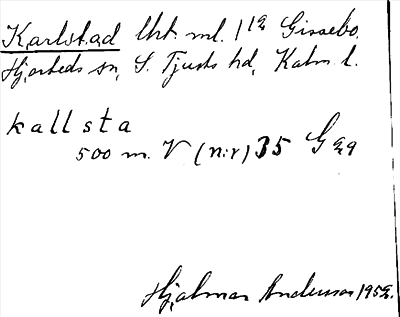 Karlstad lht ml. 1 1/2 Gissebo.
Hjorteds sn, S. Tjusts hd, Kalm. l.
kallsta
500 m. V (n:r) 35 G
Hjalmar Andersson 1952.